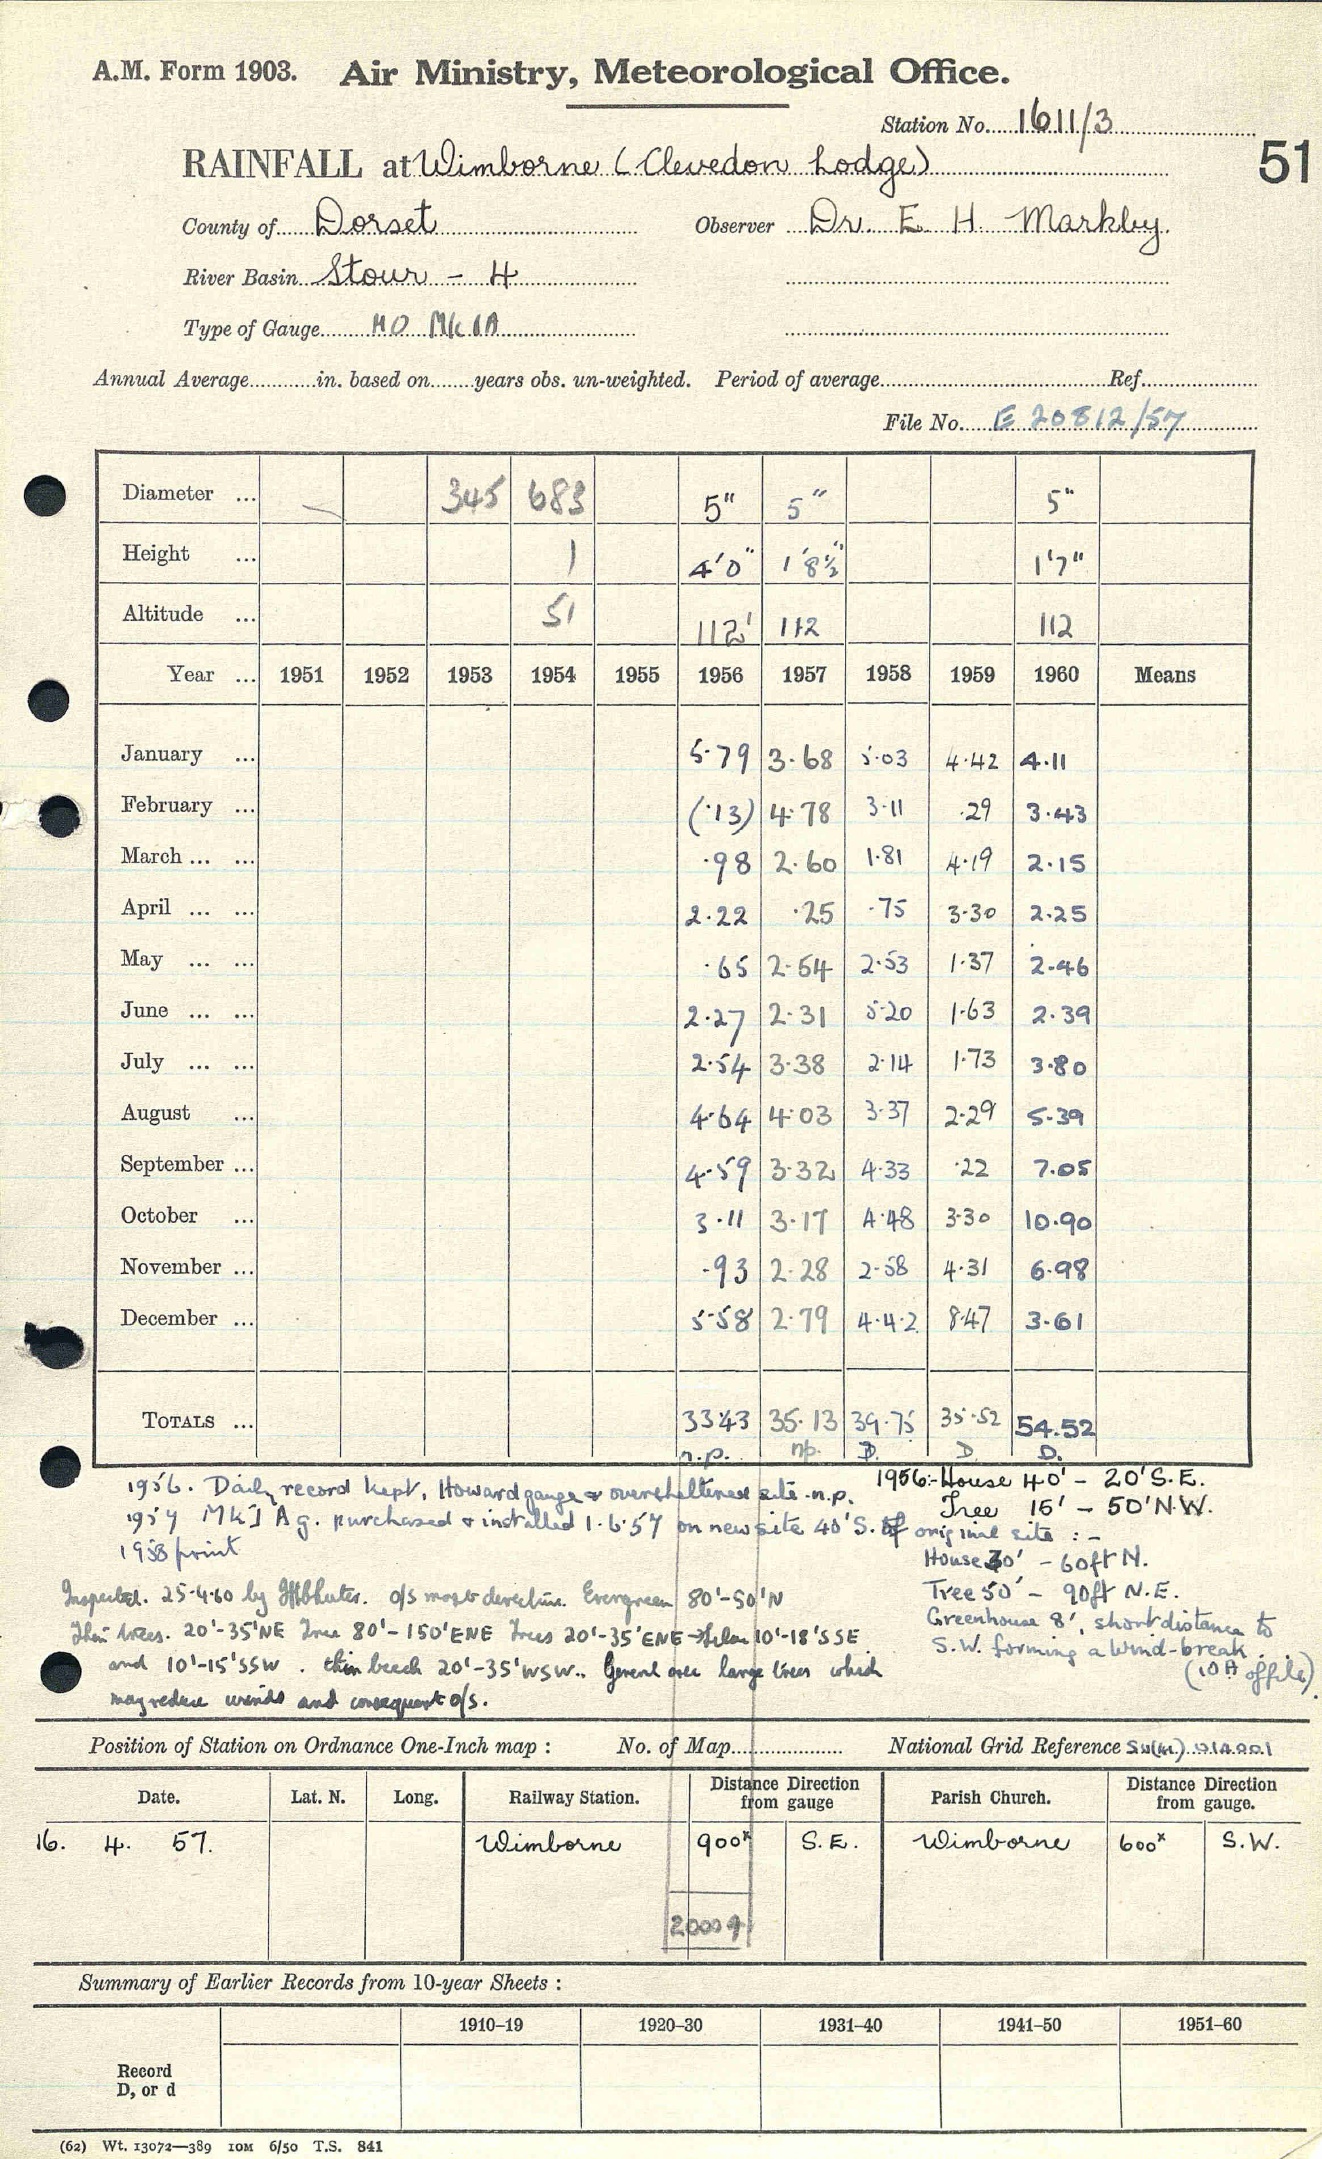 A.M. Form 1903. Air Ministry, Meteorological Office.
Station No. 1611/3
51
RAINFALL at Wimborne (Clevedon Lodge)
County of Dorset Observer Dr. E H Markby
River Basin Stour - 4
Type of Gauge MO Mk 1A
Annual Average in. based on years obs. un-weighted. Period of average Ref.
File No. E 20812/57
Diameter ... 345 683 5" 5" 5"
Height ... 1 4'0" 1'8½" 1'7"
Altitude ... 51 112' 112 112
Year ... 1951 1952 1953 1954 1955 1956 1957 1958 1959 1960 Means
January ... 5·79 3·68 5·03 4·42 4·11
February ... (·13) 4·78 3·11 ·29 3·43
March ... ... ·98 2·60 1·81 4·19 2·15
April ... ... 2·22 ·25 ·75 3·30 2·25
May ... ... ·65 2·54 2·53 1·37 2·46
June ... ... 2·27 2·31 5·20 1·63 2·39
July ... ... 2·54 3·38 2·14 1·73 3·80
August ... 4·64 4·03 3·37 2·29 5·39
September ... 4·59 3·32 4·33 ·22 7·05
October ... 3·11 3·17 4·48 3·30 10·90
November ... ·93 2·28 2·58 4·31 6·98
December ... 5·58 2·79 4·42 8·47 3·61
TOTALS ... 33·43 35·13 39·75 35·52 54.52
n.p. np. D. D. D.
1956. Daily record kept, Howard gauge & oversheltered site n.p.
1957 Mk I A g. purchased & installed 1·6·57 on new site 40' S. of original site :-
1958 print
1956:- House 40' - 20' S.E.
Tree 15' - 50' N.W.
House 30' - 60ft N.
Tree 50' - 90ft N.E.
Greenhouse 8', short distance to
S.W. forming a wind-break
(10A of file).
Inspected. 25·4·60 by o/s most direction. Evergreen 80'-50'N
Thin trees. 20'-35'NE Tree 80'-150'ENE Trees 20'-35'ENE → 10'-18'SSE
and 10'-15'SSW. thin beech 20'-35'WSW. General area large trees which
may reduce winds and consequent o/s.
Position of Station on Ordnance One-Inch map : No. of Map National Grid Reference
Date. Lat. N. Long. Railway Station. Distance from gauge Direction Parish Church. Distance from gauge. Direction
16. 4. 57. Wimborne 900ˣ S.E. Wimborne 600ˣ S.W.
20009
Summary of Earlier Records from 10-year Sheets :
1910–19 1920–30 1931–40 1941–50 1951–60
Record
D, or d
(62) Wt. 13072—389 10M 6/50 T.S. 841